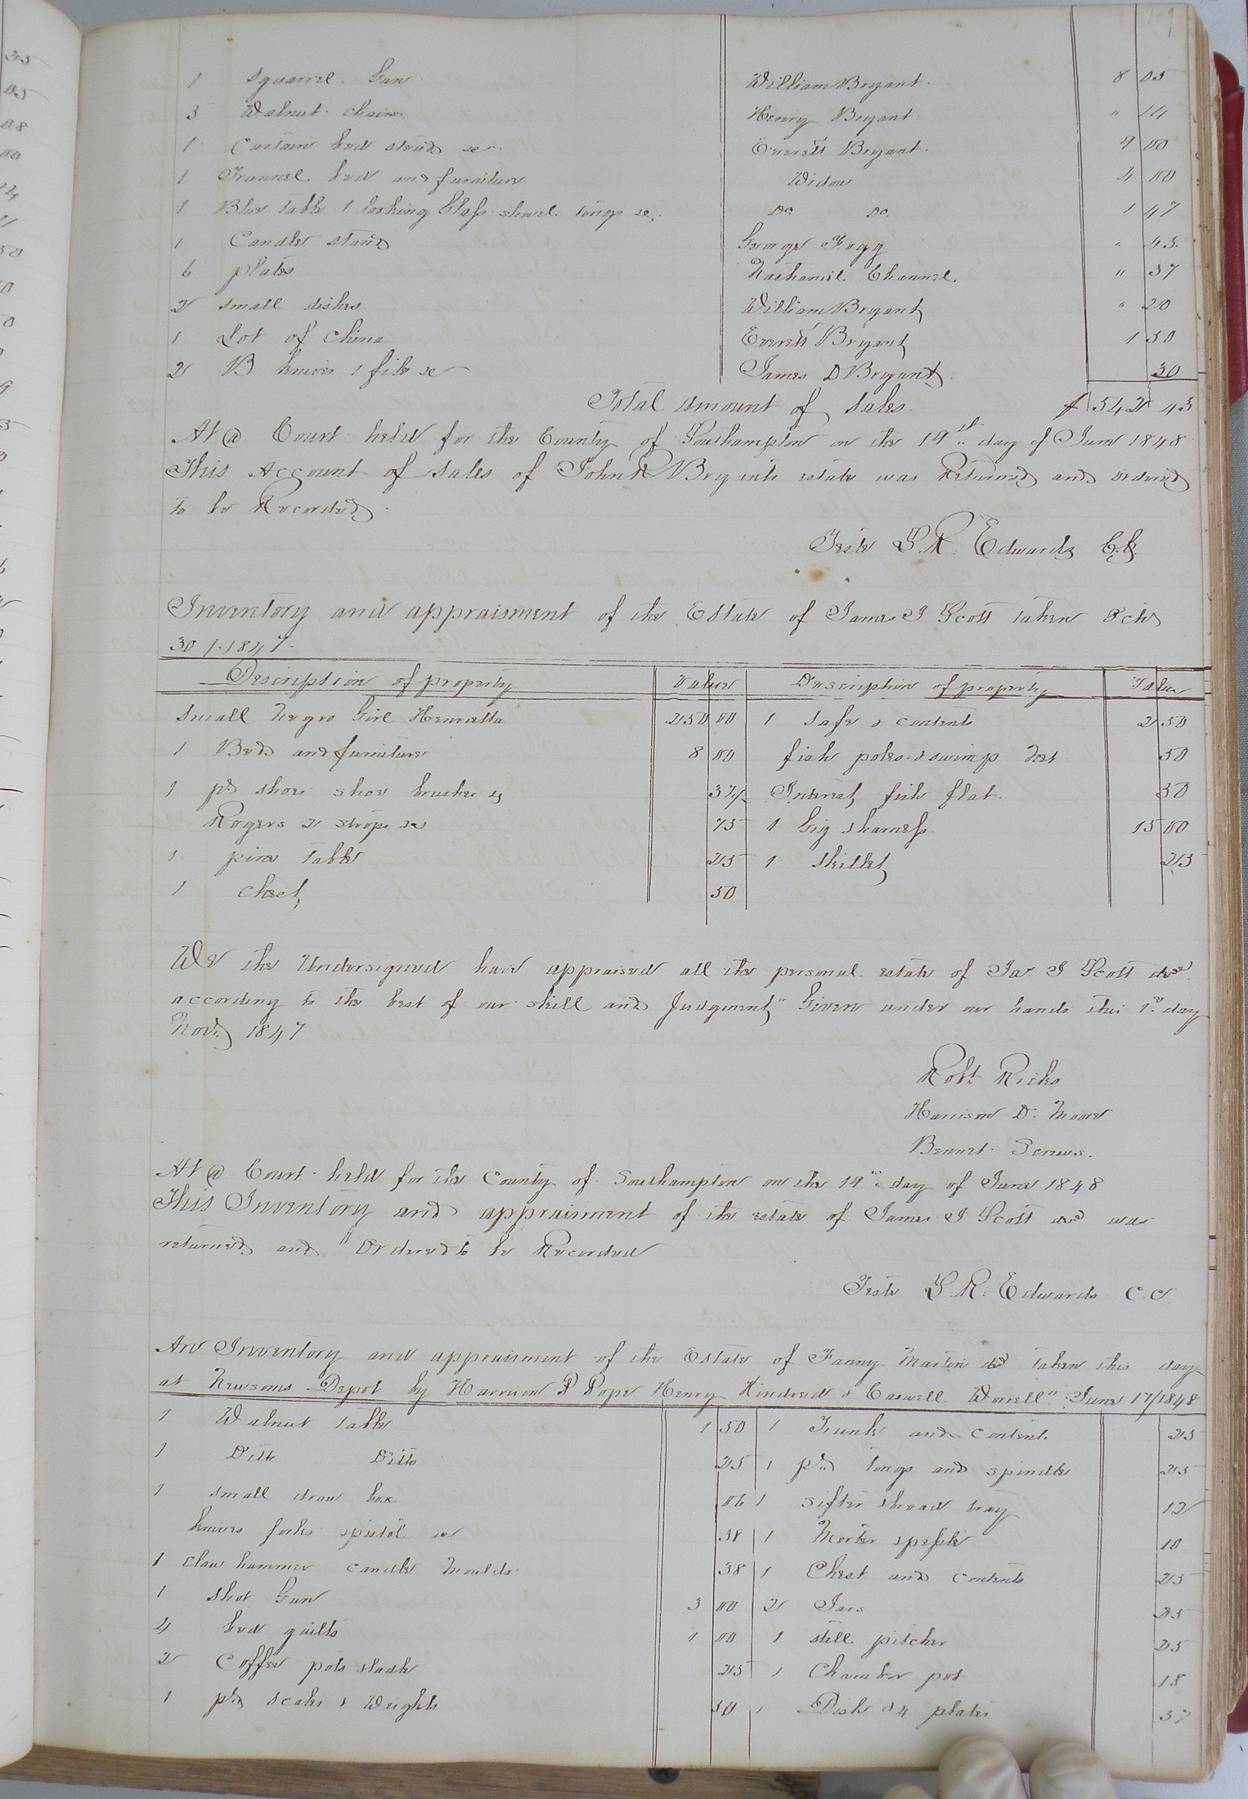 1 Squarrel Gun William Bryant 8 05
3 Walnut chairs Henry Bryant " 14
1 Curtain bed stead &c Everett Bryant 9 00
1 Trunnel bed and furniture Widow 4 00
1 table 1 looking Glass shovel tongs &c Do Do 1 47
1 Candle stand George Fogg " 45
6 plates Nathaniel Channel " 37
2 small dishes William Bryant " 20
1 Lot of China Everett Bryant 1 50
2 B knives 1 file &c James D Bryant 30
Total amount of Sales $ 542 43
At a Court held for the County of Southampton on the 19th day of June 1848
This Account of Sales of John R Bryants estate was Returned and ordered
to be Recorded
Teste L. R. Edwards C.C
Inventory and appraisment of the Estate of James J Scott taken Octr
30 /. 1847.
Description of property Value Description of property Value
Small Negro Girl Henrietta 250 00 1 Safe & contents 2 50
1 Bed and furniture 8 00 fish poles & swimp Net 50
1 pr shoes shoe brushes & 37½ Interest fish flat 50
Rogers 2 strops &c 75 1 Gig & harness 15 00
1 pine table 25 1 Skillet 25
1 chest 50
We the Undersigned have appraised all the personal estate of Jas J Scott decd
according to the best of our skill and Judgment Given under our hands this 1st day
Novr 1847
Robt Ricks
Harrison D. Moore
Bennet Screws.
At a Court held for the County of Southampton on the 19th day of June 1848
This Inventory and appraisment of the estate of James J Scott decd was
returned and Ordered to be Recorded
Teste L. R. Edwards C.C.
An Inventory and appraisment of the Estate of Fanny Martin decd taken this day
at Newsoms Depot by Harrison P Pope Henry Kindred & Caswell Worrell" June 17/1848
1 Walnut table 1 50 1 Trunk and Contents 25
1 Ditto Ditto 25 1 pr tongs and spindle 25
1 small draw box 06 1 sifter & bread tray 12
knives forks & pistol &c 38 1 Morter & pestle 10
1 claw hammer candle Moulds 38 1 Chest and contents 25
1 Shot Gun 3 00 2 Jars 25
4 bed quilts 1 00 1 still pitcher 25
2 Coffee pots 25 1 Chamber pot 18
1 pr scales & Weights 50 1 Dish & 4 plates 37